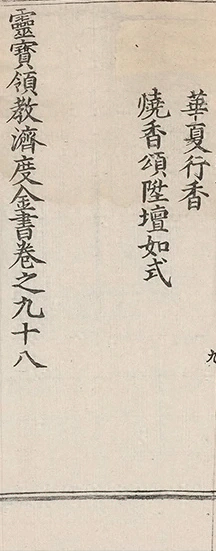 華夏行香
燒香頌陞壇如式
靈寶領教濟度金書卷之九十八
九